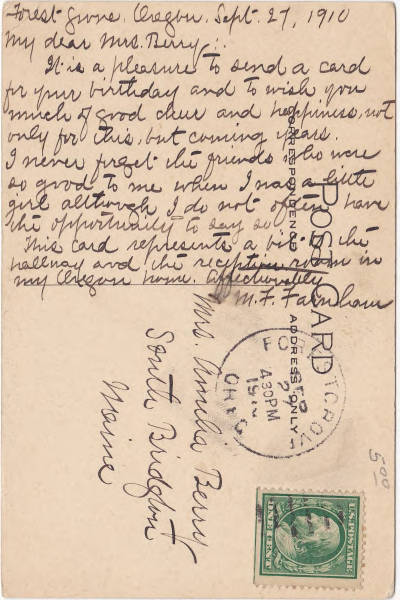 Forest Grove, Oregon. Sept. 27, 1910
My dear Mrs. Berry,:
It is a pleasure to send a card
for your birthday and to wish you
much of good cheer and happiness, not
only for this, but coming years.
I never forget the friends who were
so good to me when I was a little
girl although I do not often have
the opportunity to say so.
This card represents a bit of the
hallway and the reception room in
my Oregon home. Affectionately
M. F. Farnham
POST CARD
CORRESPONDENCE
ADDRESS ONLY
Mrs. Amelia Berry
South Bridgton
Maine
SEP
4:30 PM
OREG.
5.00
U.S. POSTAGE
ONE CENT